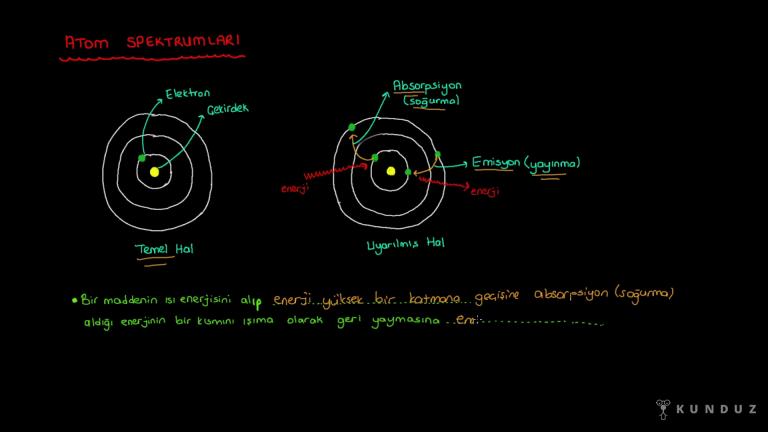 ATOM SPEKTRUMLARI
Elektron
Çekirdek
Temel Hal
Absorpsiyon
(soğurma)
Emisyon (yayınma)
enerji
enerji
Uyarılmış Hal
• Bir maddenin ısı enerjisini alıp enerji yüksek bir katmana geçişine absorpsiyon (soğurma)
aldığı enerjinin bir kısmını ışıma olarak geri yaymasına ..em...................
KUNDUZ